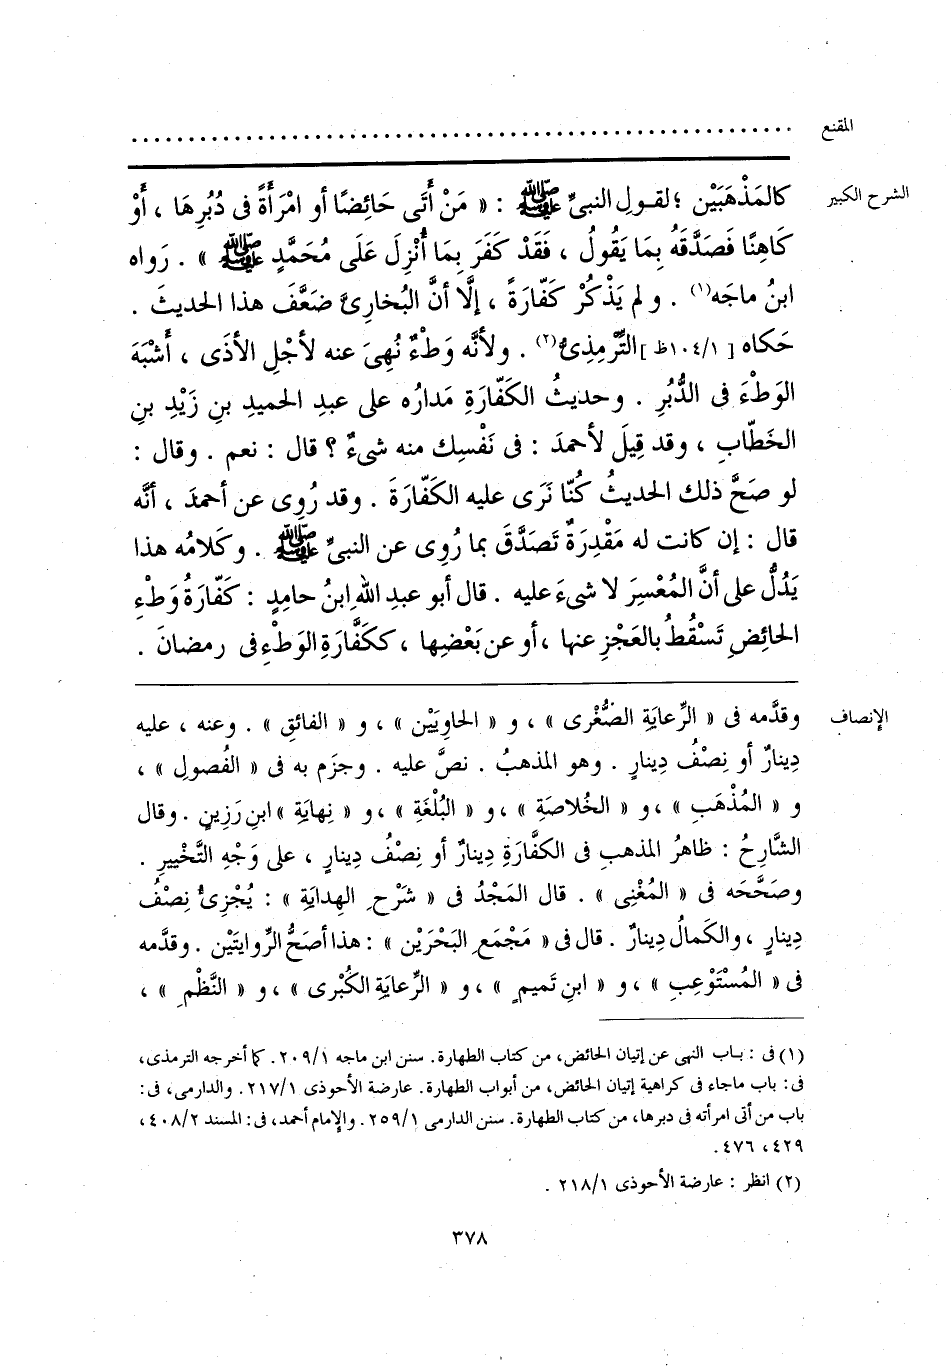 المقنع ................................................................
الشرح الكبير كالمَذْهَبَيْن ؛ لقولِ النبىِّ ﷺ : « مَنْ أَتَى حَائِضًا أو امْرَأَةً فى دُبُرِهَا ، أَوْ
كَاهِنًا فَصَدَّقَهُ بِمَا يَقُولُ ، فَقَدْ كَفَرَ بِمَا أُنْزِلَ عَلَى مُحَمَّدٍ ﷺ » . رَواه
ابنُ ماجَه(١) . و لم يَذْكُرْ كَفّارَةً ، إلَّا أنَّ البُخارِىَّ ضَعَّفَ هذا الحديثَ .
حَكاه [ ١٠٤/١ظ ] التِّرْمِذِىُّ(٢) . ولأنَّه وَطْءٌ نُهِىَ عنه لأجْلِ الأذَى ، أشْبَهَ
الوَطْءَ فى الدُّبُرِ . وحديثُ الكَفّارَةِ مَدارُه على عبدِ الحميدِ بنِ زَيْدِ بنِ
الخَطّابِ ، وقد قِيلَ لأحمدَ : فى نَفْسِك منه شىءٌ ؟ قال : نعم . وقال :
لو صَحَّ ذلك الحديثُ كُنّا نَرَى عليه الكَفّارَةَ . وقد رُوِى عن أحمدَ ، أنَّه
قال : إن كانت له مَقْدِرَةٌ تَصَدَّقَ بما رُوِى عن النبىِّ ﷺ . وكَلامُه هذا
يَدُلُّ على أنَّ المُعْسِرَ لا شىءَ عليه . قال أبو عبدِ اللهِ ابنُ حامِدٍ : كَفّارَةُ وَطْءِ
الحائِضِ تَسْقُطُ بالعَجْزِ عنها ، أو عن بَعْضِها ، ككَفَّارَةِ الوَطْءِ فى رمضانَ .
الإنصاف وقدَّمه فى « الرِّعايَةِ الصُّغْرى » ، و « الحاوِيَيْن » ، و « الفائقِ » . وعنه ، عليه
دِينارٌ أو نِصْفُ دِينارٍ . وهو المذهبُ . نصَّ عليه . وجزَم به فى « الفُصولِ » ،
و « المُذْهَبِ » ، و « الخُلاصَةِ » ، و « البُلْغَةِ » ، و « نِهايَةِ » ابنِ رَزِينٍ . وقال
الشَّارِحُ : ظاهرُ المذهبِ فى الكفَّارَةِ دِينارٌ أو نِصْفُ دِينارٍ ، على وَجْهِ التَّخْيِيرِ .
وصَحَّحَه فى « المُغْنِى » . قال المَجْدُ فى « شَرْحِ الهِدايَةِ » : يُجْزِئُ نِصْفُ
دِينارٍ ، والكَمالُ دِينارٌ . قال فى « مَجْمَعِ البَحْرَيْن » : هذا أصَحُّ الرِّوايتَيْن . وقدَّمه
فى « المُسْتَوْعِبِ » ، و « ابنِ تَميمٍ » ، و « الرِّعايَةِ الكُبْرى » ، و « النَّظْمِ » ،
(١) فى : باب النهى عن إتيان الحائض، من كتاب الطهارة. سنن ابن ماجه ٢٠٩/١. كما أخرجه الترمذى،
فى: باب ماجاء فى كراهية إتيان الحائض، من أبواب الطهارة. عارضة الأحوذى ٢١٧/١. والدارمى، فى:
باب من أتى امرأته فى دبرها، من كتاب الطهارة. سنن الدارمى ٢٥٩/١. والإمام أحمد، فى: المسند ٤٠٨/٢،
٤٢٩، ٤٧٦.
(٢) انظر : عارضة الأحوذى ٢١٨/١ .
٣٧٨